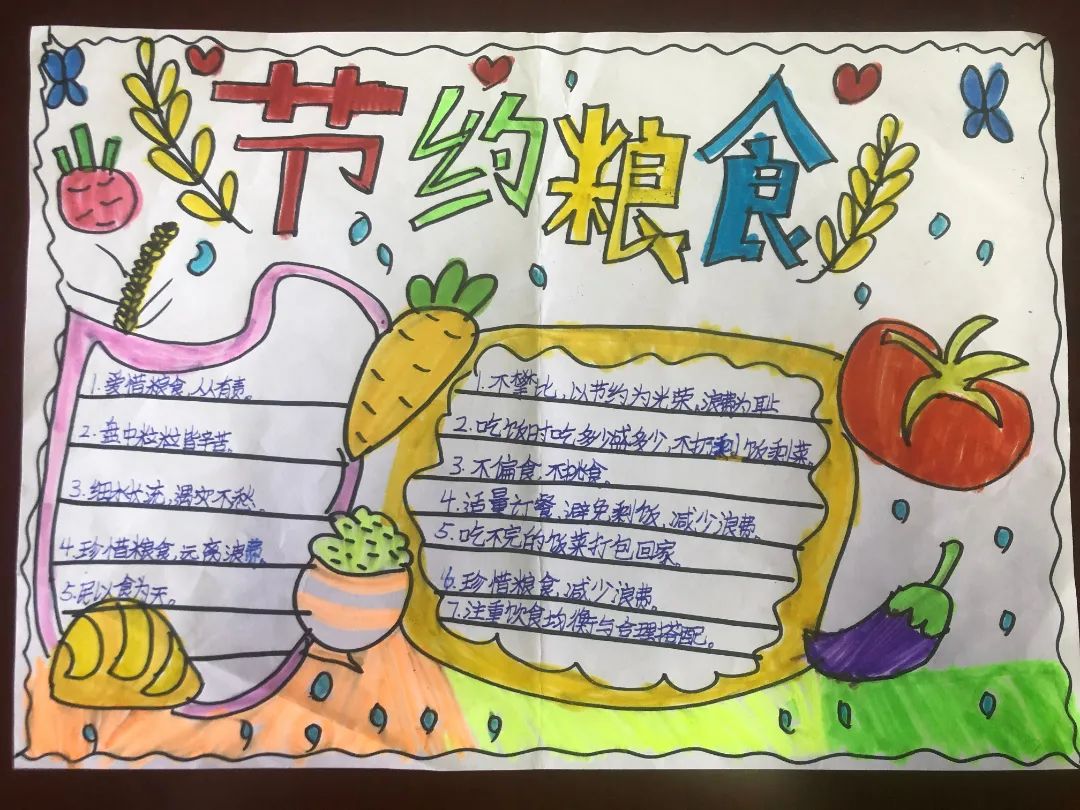 节约粮食
1.爱惜粮食,人人有责。
2.盘中粒粒皆辛苦。
3.细水长流,遇灾不愁。
4.珍惜粮食,远离浪费。
5.民以食为天。
1.不攀比,以节约为光荣,浪费为耻
2.吃饭时吃多少盛多少,不扔剩饭剩菜。
3.不偏食,不挑食。
4.适量订餐,避免剩饭,减少浪费。
5.吃不完的饭菜打包回家。
6.珍惜粮食,减少浪费。
7.注重饮食均衡与合理搭配。